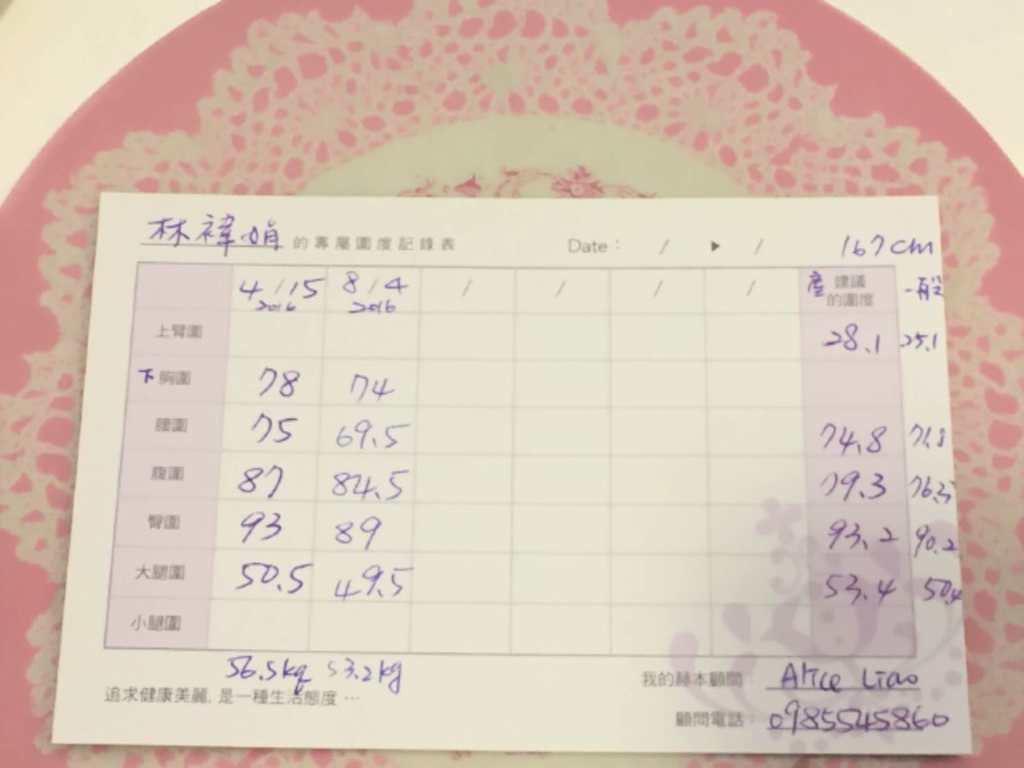 林褘娟 的專屬圍度記錄表 Date： / ▶ / 167cm
4/15 2016 8/4 2016 / / / / 產 建議的圍度 一般
上臂圍 28.1 25.1
下胸圍 78 74
腰圍 75 69.5 74.8 71.8
腹圍 87 84.5 79.3 76.3
臀圍 93 89 93.2 90.2
大腿圍 50.5 49.5 53.4 50.4
小腿圍
56.5kg 53.2kg
追求健康美麗, 是一種生活態度…
我的赫本顧問： Alice Liao
顧問電話： 0985545860